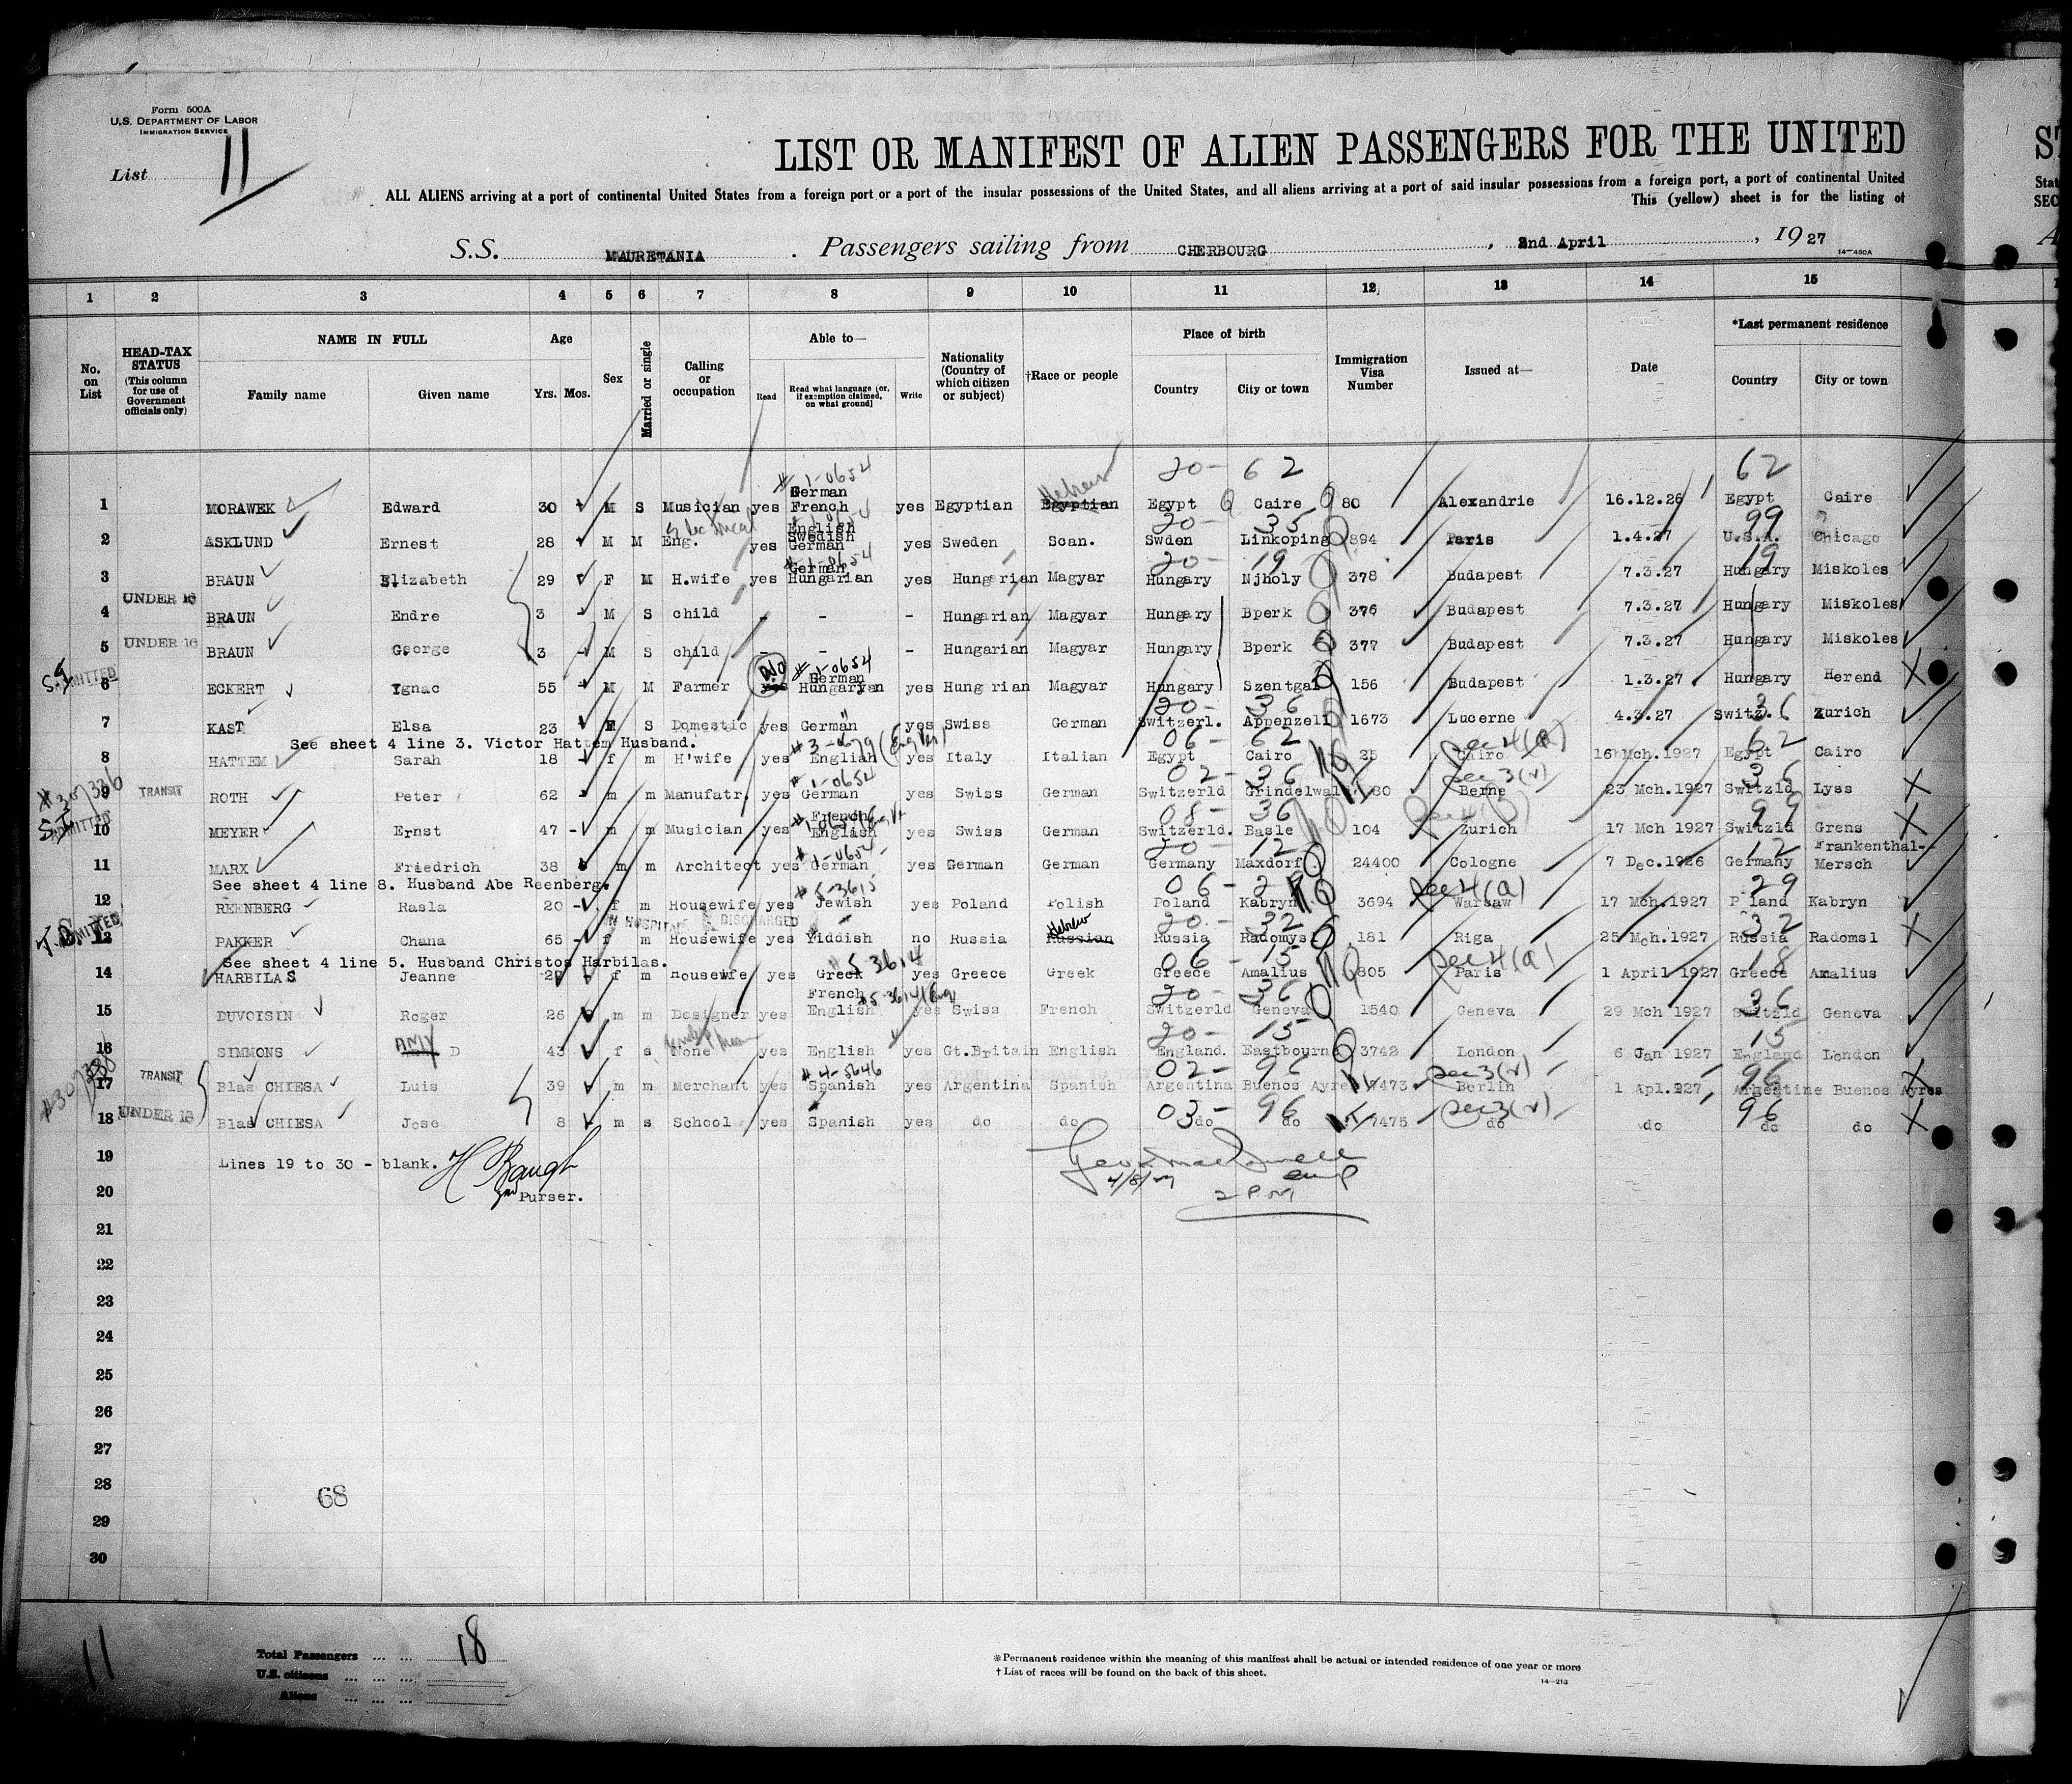 Form 500A
U.S. DEPARTMENT OF LABOR
IMMIGRATION SERVICE
List 11
LIST OR MANIFEST OF ALIEN PASSENGERS FOR THE UNITED
ALL ALIENS arriving at a port of continental United States from a foreign port or a port of the insular possessions of the United States, and all aliens arriving at a port of said insular possessions from a foreign port, a port of continental United
This (yellow) sheet is for the listing of
S.S. MAURETANIA . Passengers sailing from CHERBOURG , 2nd April , 1927
14-480A
1 2 3 4 5 6 7 8 9 10 11 12 13 14 15
No. on List
HEAD-TAX STATUS (This column for use of Government officials only)
NAME IN FULL
Family name Given name
Age
Yrs. Mos.
Sex
Married or single
Calling or occupation
Able to—
Read Read what language [or, if exemption claimed, on what ground] Write
Nationality (Country of which citizen or subject)
†Race or people
Place of birth
Country City or town
Immigration Visa Number
Issued at—
Date
*Last permanent residence
Country City or town
20- 62 62
# 1-0654
1 MORAWEK Edward 30 M S Musician yes German French yes Egyptian Egyptian Hebrew Egypt Caire 80 Alexandrie 16.12.26 Egypt Caire
20- 35 99
2 ASKLUND Ernest 28 M M Electrical Eng. yes English Swedish German yes Sweden Scan. Swden Linkoping 894 Paris 1.4.27 U.S.A. Chicago
# 1-0654 20- 19 19
3 BRAUN Elizabeth 29 F M H.wife yes German Hungarian yes Hungarian Magyar Hungary Njholy 378 Budapest 7.3.27 Hungary Miskoles
UNDER 16
4 BRAUN Endre 3 M S child - - - Hungarian Magyar Hungary Bperk 376 Budapest 7.3.27 Hungary Miskoles
UNDER 16
5 BRAUN George 3 M S child - - - Hungarian Magyar Hungary Bperk 377 Budapest 7.3.27 Hungary Miskoles
S.I. ADMITTED No # 1-0654
6 ECKERT Ygnac 55 M M Farmer yes German Hungaryan yes Hung rian Magyar Hungary Szentgal 156 Budapest 1.3.27 Hungary Herend
20- 36 36
7 KAST Elsa 23 F S Domestic yes German yes Swiss German Switzerl. Appenzell 1673 Lucerne 4.3.27 Switz. Zurich
See sheet 4 line 3. Victor Hattem Husband.
# 3-0679 (Eng 06- 62 Sec 4(a) 62
8 HATTEM Sarah 18 f m H'wife yes English yes Italy Italian Egypt Cairo 25 Cairo 16 Mch.1927 Egypt Cairo
# 1-0654 02- 36 Sec 3(2) 36
9 TRANSIT ROTH Peter 62 m m Manufatr. yes German yes Swiss German Switzerld Grindelwal 80 Berne 23 Mch.1927 Switzld Lyss
S.I. ADMITTED 08- 36 99
10 MEYER Ernst 47 m m Musician yes French English yes Swiss German Switzerld. Basle 104 Zurich 17 Mch 1927 Switzld Grens
# 1-0654 20- 12 12
11 MARX Friedrich 38 m m Architect yes German yes German German Germany Maxdorf 24400 Cologne 7 Dec.1926 Germany Frankenthal- Mersch
See sheet 4 line 8. Husband Abe Reenberg.
# 5-3615 06- 29 Sec 4(a) 29
12 REENBERG Rasla 20 f m Housewife yes Jewish yes Poland Polish Poland Kabryn 3694 Warsaw 17 Mch.1927 P land Kabryn
ADMITTED IN HOSPITAL DISCHARGED 20- 32 32
13 PAKKER Chana 65 f m Housewife yes Yiddish no Russia Russian Hebrew Russia Radomysl 181 Riga 25 Mch.1927 Russia Radomsl
See sheet 4 line 5. Husband Christos Harbilas.
# 5 3614 06- 15 Sec 4(a) 18
14 HARBILAS Jeanne 29 f m Housewife yes Greek yes Greece Greek Greece Amalius 805 Paris 1 April 1927 Greece Amalius
20- 36 36
15 DUVOISIN Roger 26 m m Designer yes French English yes Swiss French Switzerld Geneva 1540 Geneva 29 Mch 1927 Switzld Geneva
20- 15 15
16 SIMMONS AMY D 43 f s None yes English yes Gt.Britain English England. Eastbourne 3742 London 6 Jan 1927 England London
# 4-5646 02- 96 Sec 3(2) 96
17 TRANSIT Blas CHIESA Luis 39 m m Merchant yes Spanish yes Argentina Spanish Argentina Buenos Ayres 7473 Berlin 1 Apl.927 Argentine Buenos Ayres
UNDER 16 03- 96 Sec 3(2) 96
18 Blas CHIESA Jose 8 m s School yes Spanish yes do do do do 7475 do do do do
19 Lines 19 to 30 - blank. H Baugh
Purser.
4/8/27
2 P.M
20
21
22
23
24
25
26
27
28
68
29
30
11
Total Passengers ... ... 18
U.S. citizens ... ... ...
Aliens ... ... ...
*Permanent residence within the meaning of this manifest shall be actual or intended residence of one year or more
† List of races will be found on the back of this sheet.
14-213